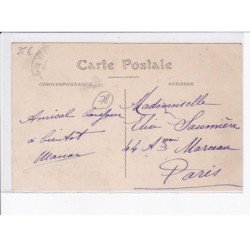 35 €
Carte Postale
CORRESPONDANCE
ADRESSE
Amical bonjour
à bientôt
Mademoiselle
Elise Saumière
44 Av Marceau
Paris